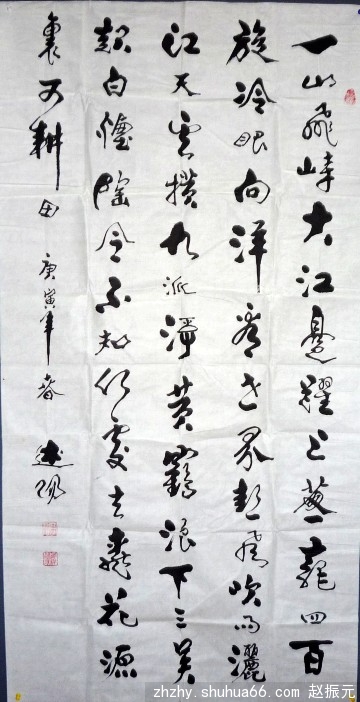 一山飛峙大江邊躍上葱蘢四百
旋冷眼向洋看世界熱風吹雨灑
江天雲横九派浮黄鶴浪下三吴
起白煙陶令不知何處去桃花源
裏可耕田 庚寅年春
zhzhy.shuhua66.com 赵振元